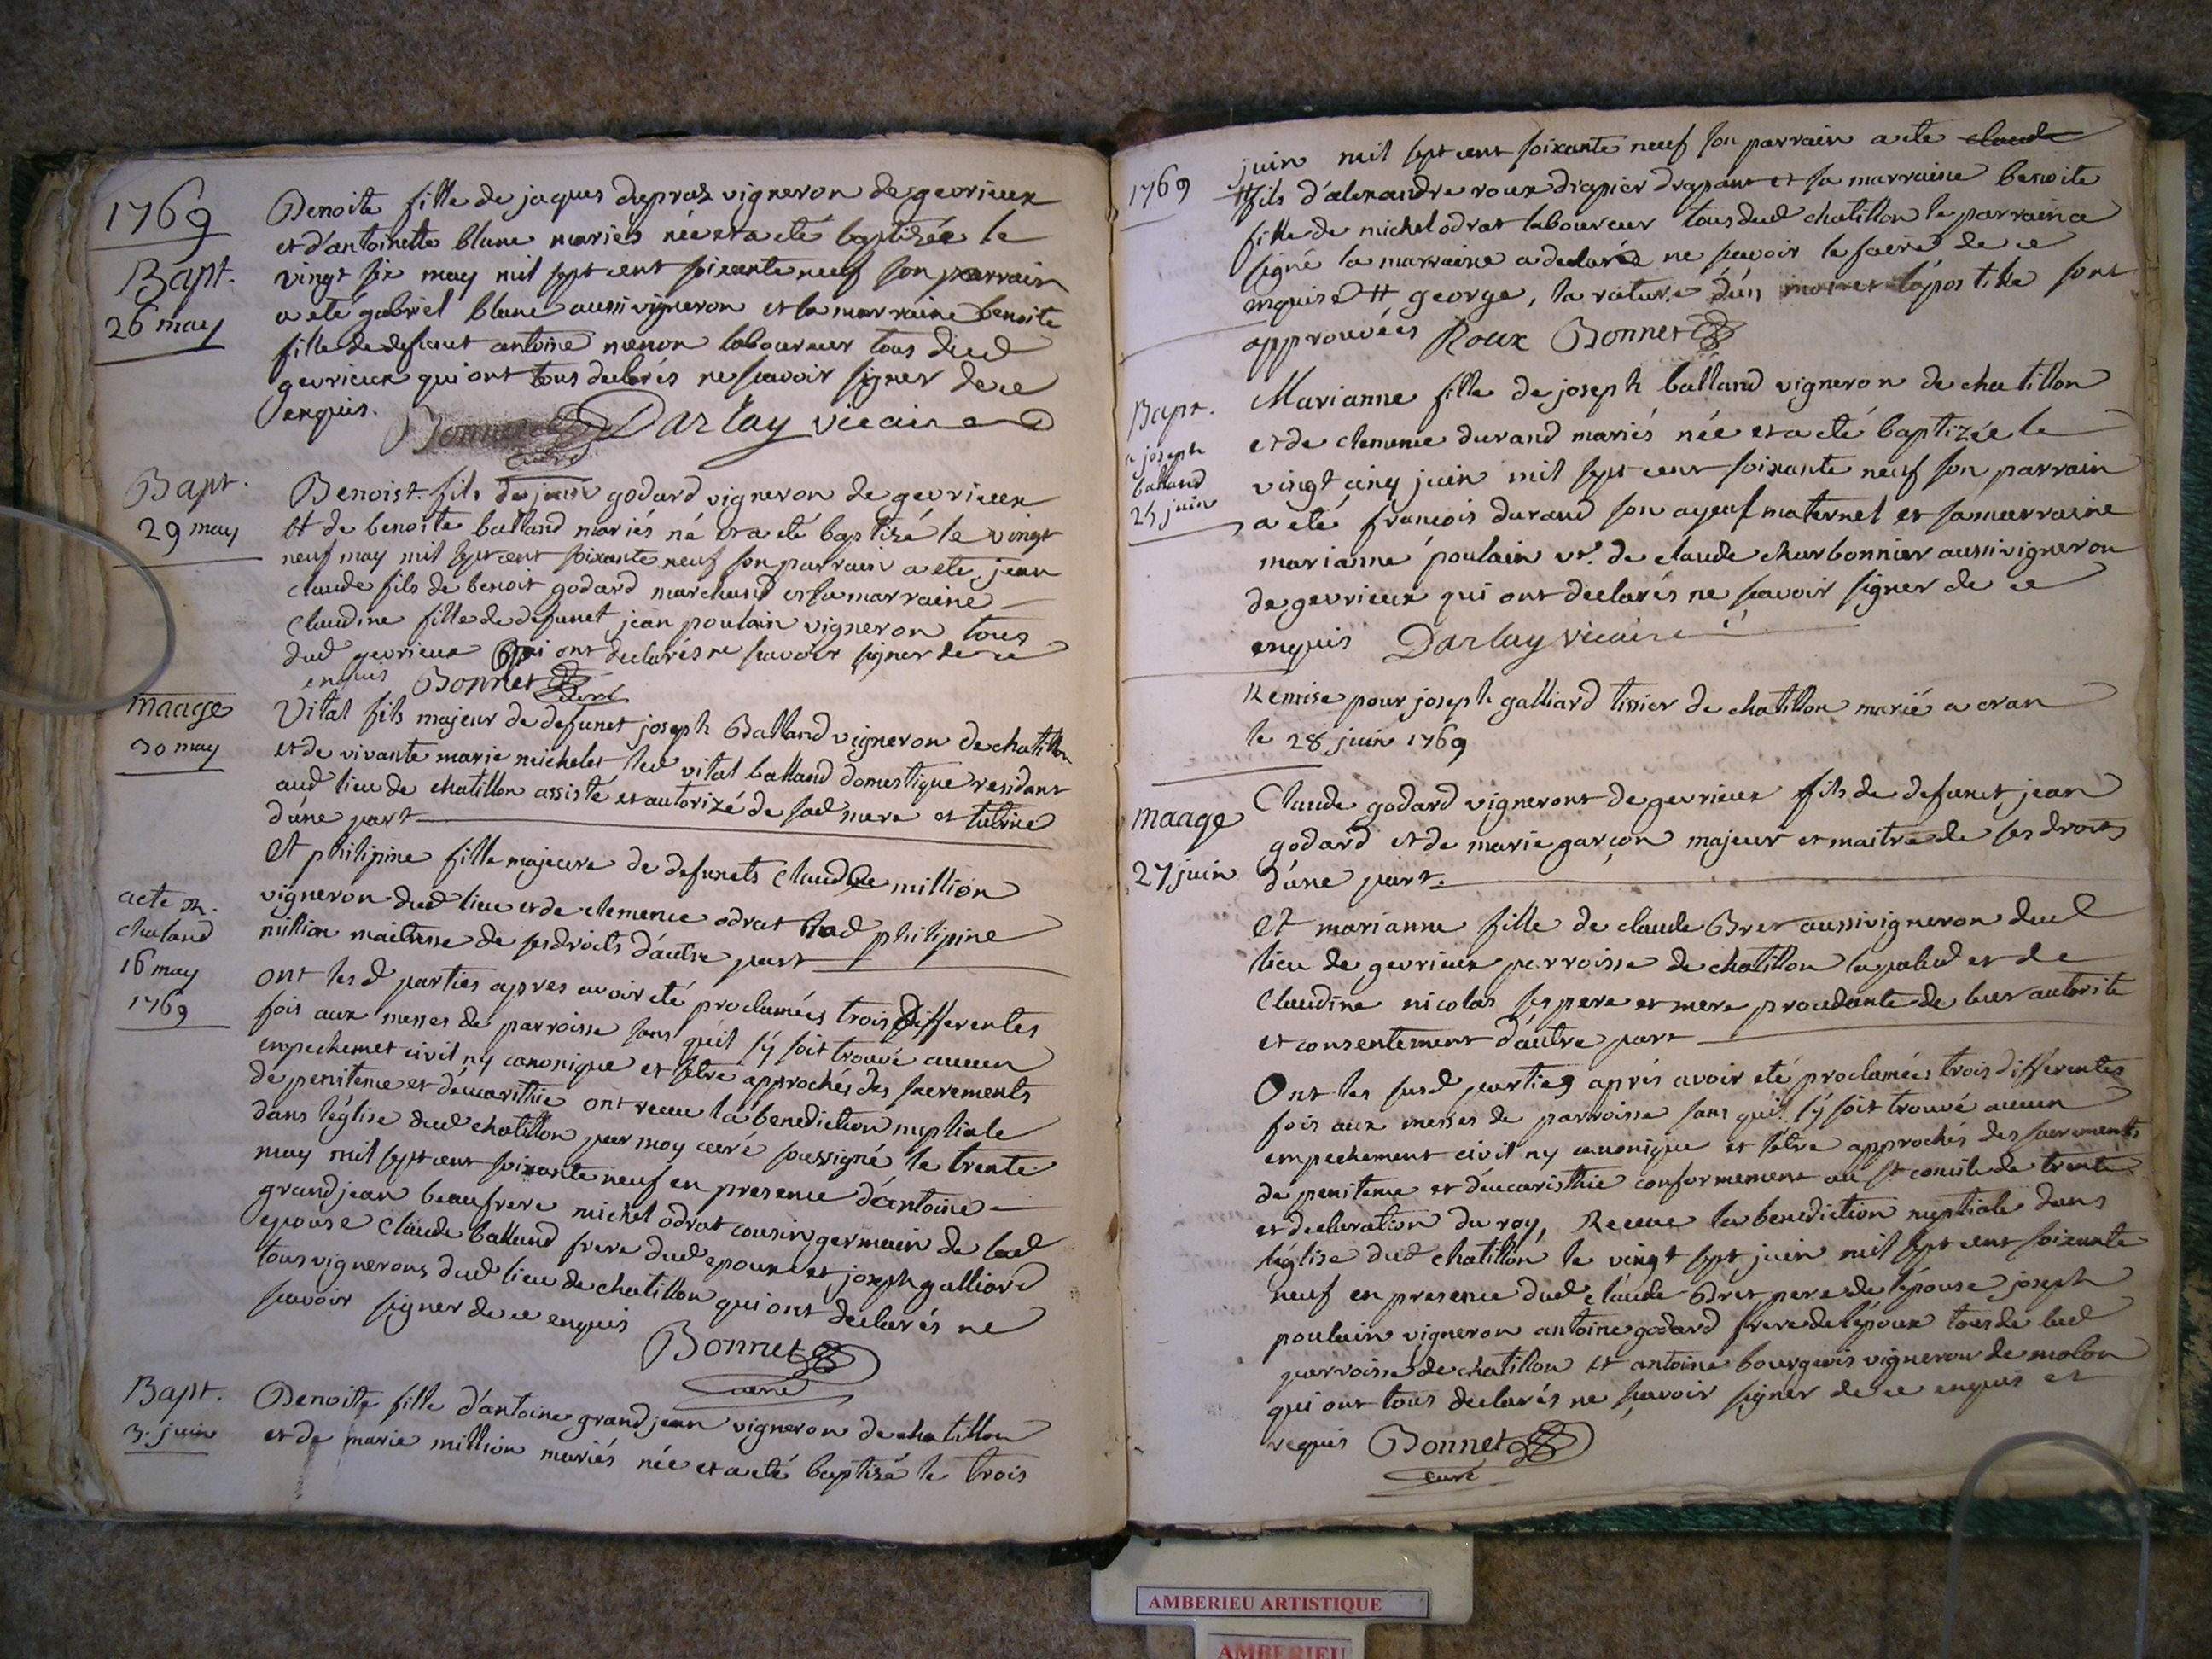 1769
Bapt.
26 may
Benoite fille de jaques depraz vigneron de gevrieux
et d'antoinette blanc mariés née et a eté baptizée le
vingt six may mil sept cent soixante neuf son parrain
a eté gabriel blanc aussi vigneron et la marraine benoite
fille de defunct antoine menon laboureur tous dud
gevrieux qui ont tous declarés ne scavoir signer de ce
enquis.
Bonnet curé Darlay vicaire
Bapt.
29 may
Benoist fils de jean godard vigneron de gevrieux
et de benoite balland mariés né et a eté baptizé le vingt
neuf may mil sept cent soixante neuf son parrain a eté jean
claude fils de benoit godard marchand et sa marraine
claudine fille de defunct jean poulain vigneron tous
dud gevrieux qui ont declarés ne scavoir signer de ce
enquis Bonnet curé
maage
30 may
Vital fils majeur de defunct joseph Balland vigneron de chatillon
et de vivante marie michelet led vital balland domestique residant
aud lieu de chatillon assisté et autorizé de sad mere et tutrice
d'une part
Et philipine fille majeure de defuncts claude million
vigneron dud lieu et de clemence odrat lad philipine
million maitresse de ses droits d'autre part
acte
chaland
16 may
1769
ont lesd parties apres avoir eté proclamées trois differentes
fois aux messes de parroisse sans qu'il s'y soit trouvé aucun
empechemet civil ny canonique et s'etre approchés des sacrements
de penitence et d'eucaristhie ont receu la benediction nuptiale
dans l'église dud chatillon par moy curé soussigné le trente
may mil sept cent soixante neuf en presence d'antoine
grandjean beaufrere michel odrat cousin germain de lad
epouse claude balland frere dud epoux et joseph galliard
tous vignerons dud lieu de chatillon qui ont declarés ne
scavoir signer de ce enquis
Bonnet
curé
Bapt.
3. juin
Benoite fille d'antoine grandjean vigneron de chatillon
et de marie million mariés née et a eté baptizé le trois
1769
juin mil sept cent soixante neuf son parrain a eté claude
# fils d'alexandre roux drapier drapant et sa marraine benoite
fille de michel odrat laboureur tous dud chatillon le parrain a
signé la marraine a declaré ne scavoir le faire de ce
enquise # george, la rature d'un mot et l'apostille sont
approuvées Roux Bonnet
Bapt.
joseph
balland
25 juin
Marianne fille de joseph balland vigneron de chatillon
et de clemence durand mariés née et a eté baptizée le
vingt cinq juin mil sept cent soixante neuf son parrain
a eté francois durand son ayeul maternel et sa marraine
marianne poulain ve. de claude charbonnier aussi vigneron
de gevrieux qui ont declarés ne scavoir signer de ce
enquis Darlay vicaire
Remise pour joseph galliard tissier de chatillon marié a cran
le 28 juin 1769
maage
27 juin
Claude godard vigneront de gevrieux fils de defunct jean
godard et de marie garçon majeur et maitre de ses droits
d'une part.
Et marianne fille de claude Bret aussi vigneron dud
lieu de gevrieux parroisse de chatillon lapalud et de
claudine nicolas ses pere et mere procedante de leur autorite
et consentement d'autre part
Ont les susd parties aprés avoir eté proclamées trois differentes
fois aux messes de parroisse sans qu'il s'y soit trouvé aucun
empechement civil ny canonique et s'etre approchés des sacrements
de penitence et d'eucaristhie conformement au st concile de trente
et declaration du roy, Receue la benediction nuptiale dans
l'église dud chatillon le vingt sept juin mil sept cent soixante
neuf en presence dud claude Bret pere de l'épouse joseph
poulain vigneron antoine godard frere de l'époux tous de lad
parroisse de chatillon et antoine bourgeois vigneron de molon
qui ont tous declarés ne scavoir signer de ce enquis et
requis Bonnet
curé
AMBERIEU ARTISTIQUE
AMBERIEU